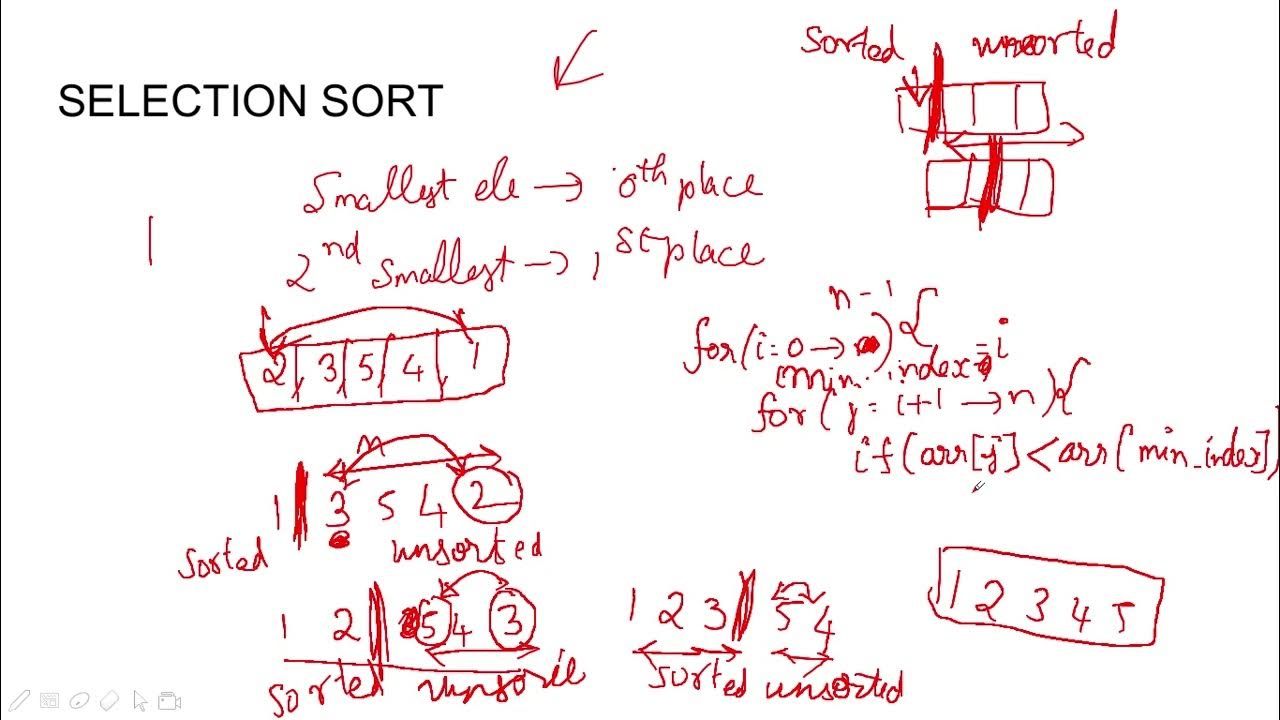 SELECTION SORT
Smallest ele → 0th place
2nd smallest → 1st place
2 3 5 4 1
1 3 5 4 2
sorted unsorted
1 2 5 4 3
sorted
1 2 3 5 4
sorted unsorted
sorted unsorted
n-1
for(i=0 → ) {
min_index=i
for(j=i+1 → n){
if(arr[j]<arr[min_index])
1 2 3 4 5